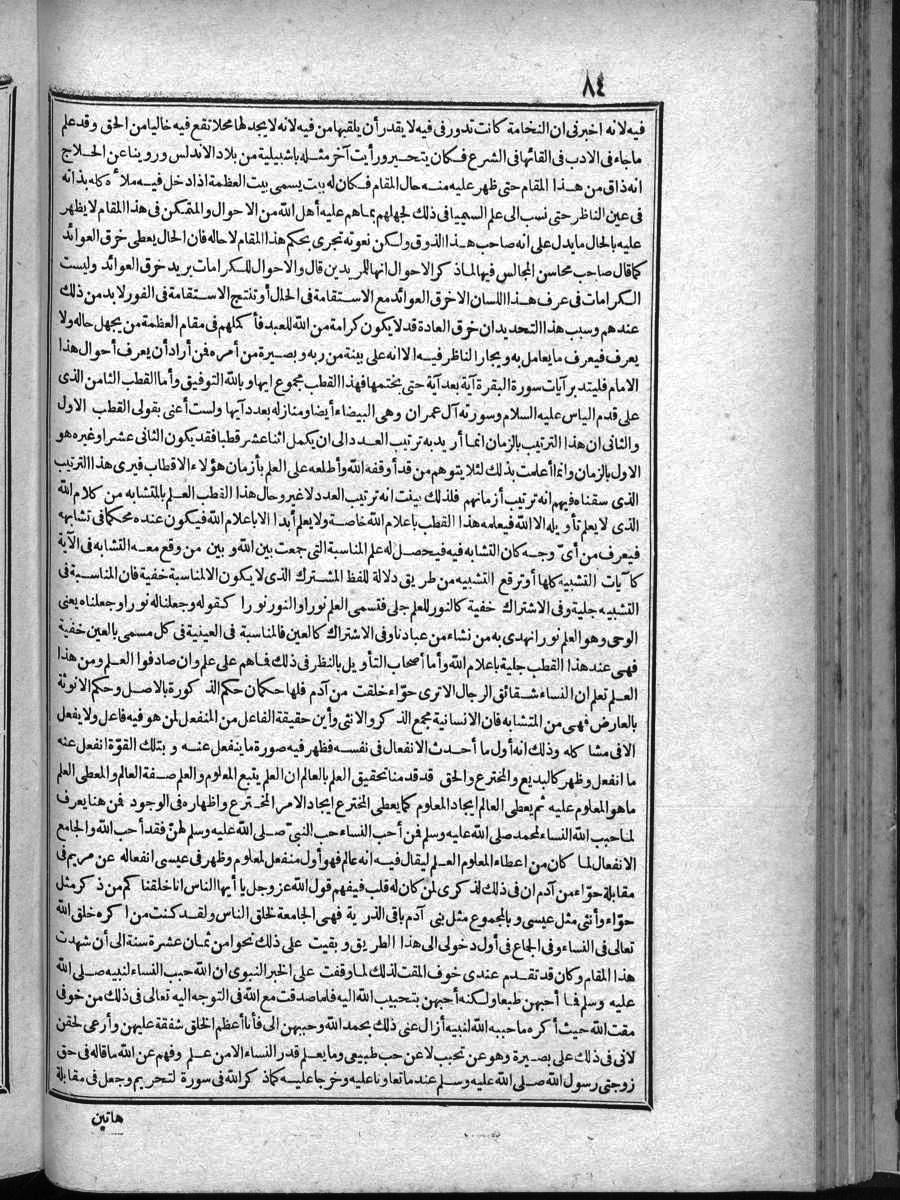 ٨٤
فيه لانه اخبرنى ان النخامة كانت تدور فى فيه لا يقدر أن يلقيها من فيه لانه لا يجد لها محلا تقع فيه خاليا من الحق وقد علم
ما جاء فى الادب فى القائها فى الشرع فكان يتحير ورأيت آخر مثله باشبيلية من بلاد الاندلس وروينا عن الحلاج
انه ذاق من هذا المقام حتى ظهر عليه منه حال المقام فكان له بيت يسمى بيت العظمة اذا دخل فيه ملأه كله بذاته
فى عين الناظر حتى نسب الى علم السيميا فى ذلك لجهلهم بما هم عليه أهل الله من الاحوال والمتمكن فى هذا المقام لا يظهر
عليه بالحال ما يدل على انه صاحب هذا الذوق ولكن نعوته تجرى بحكم هذا المقام لا حاله فان الحال يعطى خرق العوائد
كما قال صاحب محاسن المجالس فيها لما ذكر الاحوال انها للمريدين قال والاحوال للكرامات يريد خرق العوائد وليست
الكرامات فى عرف هذا اللسان الا خرق العوائد مع الاستقامة فى الحال أو تنتج الاستقامة فى الفور لا بد من ذلك
عندهم وسبب هذا التحديد ان خرق العادة قد لا يكون كرامة من الله للعبد فأكملهم فى مقام العظمة من يجهل حاله ولا
يعرف فيعرف ما يعامل به ويحار الناظر فيه الا انه على بينة من ربه وبصيرة من أمره فمن أراد أن يعرف أحوال هذا
الامام فليتدبر آيات سورة البقرة آية بعد آية حتى يختمها فهذا القطب مجموع ايها وبالله التوفيق وأما القطب الثامن الذى
على قدم الياس عليه السلام وسورته آل عمران وهى البيضاء أيضا ومنازله بعدد آيها ولست أعنى بقولى القطب الاول
والثانى ان هذا الترتيب بالزمان انما أريد به ترتيب العدد الى ان يكمل اثنا عشر قطبا فقد يكون الثانى عشر او غيره هو
الاول بالزمان وانما أعلمت بذلك لئلا يتوهم من قد أوقفه الله وأطلعه على العلم بأزمان هؤلاء الاقطاب فيرى هذا الترتيب
الذى سقناه فيهم انه ترتيب أزمانهم فلذلك بينت انه ترتيب العدد لا غير وحال هذا القطب العلم بالمتشابه من كلام الله
الذى لا يعلم تأويله الا الله فيعلمه هذا القطب باعلام الله خاصة ولا يعلم أبدا الا باعلام الله فيكون عنده محكما فى تشابهه
فيعرف من أىّ وجه كان التشابه فيه فيحصل له علم المناسبة التى جمعت بين الله وبين من وقع معه التشابه فى الآية
كآيات التشبيه كلها أو ترقع التشبيه من طريق دلالة للفظ المشترك الذى لا يكون الا لمناسبة خفية فان المناسبة فى
التشبيه جلية وفى الاشتراك خفية كالنور للعلم جلى فتسمى العلم نورا والنور نورا كقوله وجعلنا له نورا وجعلناه يعنى
الوحى وهو العلم نورا نهدى به من نشاء من عبادنا وفى الاشتراك كالعين فالمناسبة فى العينية فى كل مسمى بالعين خفية
فهى عند هذا القطب جلية باعلام الله وأما أصحاب التأويل بالنظر فى ذلك فما هم على علم وان صادفوا العلم ومن هذا
العلم تعلم ان النساء شقائق الرجال الا ترى حوّاء خلقت من آدم فلها حكمان حكم الذكورة بالاصل وحكم الانوثة
بالعارض فهى من المتشابه فان الانسانية مجمع الذكر والانثى وأين حقيقة الفاعل من المنفعل لمن هو فيه فاعل ولا يفعل
الا فى مشاكله وذلك انه أول ما أحدث الانفعال فى نفسه فظهر فيه صورة ما ينفعل عنه وبتلك القوّة انفعل عنه
ما انفعل وظهر كالبديع والمخترع والحق قد قدمنا تحقيق العلم بالعالم ان العلم يتبع المعلوم والعلم صفة العالم والمعطى العلم
ما هو المعلوم عليه ثم يعطى العالم ايجاد المعلوم كما يعطى المخترع ايجاد الامر المخترع واظهاره فى الوجود فمن هنا يعرف
لما حبب الله النساء لمحمد صلى الله عليه وسلم فمن أحب النساء حب النبىّ صلى الله عليه وسلم لهنّ فقد أحب الله والجامع
الانفعال لما كان من اعطاء المعلوم العلم ليقال فيه انه عالم فهو أول منفعل لمعلوم وظهر فى عيسى انفعاله عن مريم فى
مقابلة حوّاء من آدم ان فى ذلك لذكرى لمن كان له قلب فيفهم قول الله عز وجل يا أيها الناس انا خلقناكم من ذكر مثل
حوّاء وأنثى مثل عيسى وبالمجموع مثل بنى آدم باقى الذرية فهى الجامعة لخلق الناس ولقد كنت من اكره خلق الله
تعالى فى النساء وفى الجماع فى أول دخولى الى هذا الطريق وبقيت على ذلك نحوا من ثمان عشرة سنة الى أن شهدت
هذا المقام وكان قد تقدم عندى خوف المقت لذلك لما وقفت على الخبر النبوى ان الله حبب النساء لنبيه صلى الله
عليه وسلم فما أحبهن طبعا ولكنه أحبهن بتحبيب الله اليه فلما صدقت مع الله فى التوجه اليه تعالى فى ذلك من خوفى
مقت الله حيث أكره ما حببه الله لنبيه أزال عنى ذلك بحمد الله وحببهن الى فأنا أعظم الخلق شفقة عليهن وأرعى لحقهن
لانى فى ذلك على بصيرة وهو عن تحبب لا عن حب طبيعى وما يعلم قدر النساء الا من علم وفهم عن الله ما قاله فى حق
زوجتى رسول الله صلى الله عليه وسلم عندما تعاونا عليه وخرجا عليه كما ذكر الله فى سورة التحريم وجعل فى مقابلة
هاتين